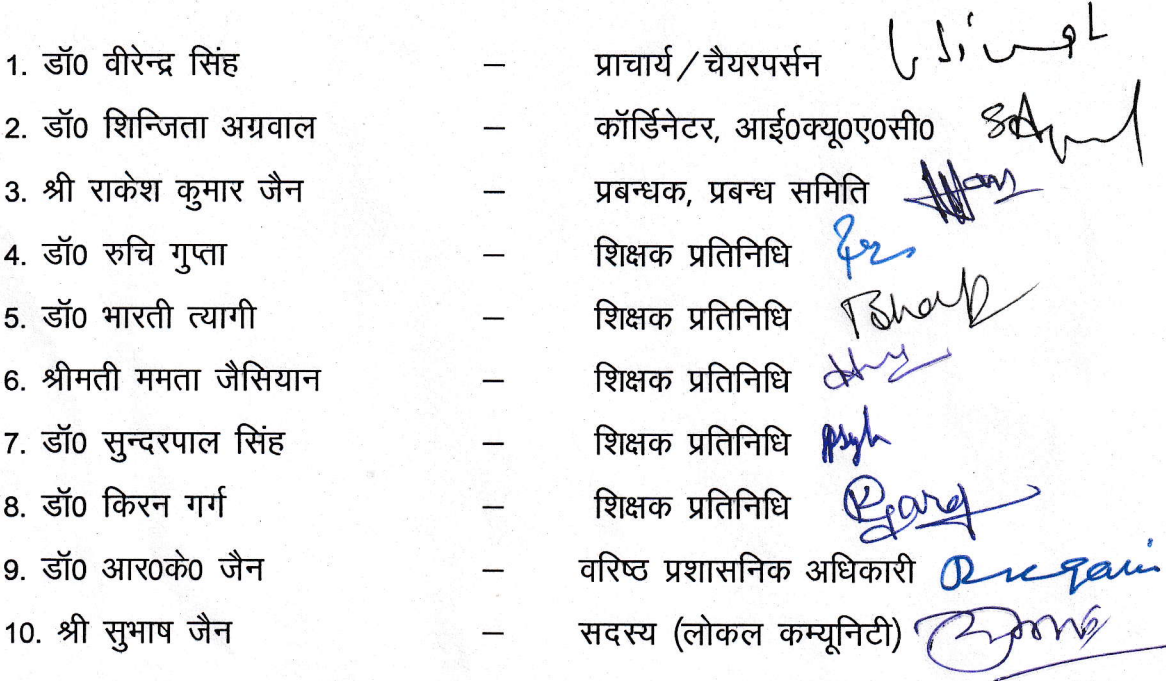 1. डॉ0 वीरेन्द्र सिंह – प्राचार्य / चैयरपर्सन
2. डॉ0 शिन्जिता अग्रवाल – कॉर्डिनेटर, आई0क्यू0ए0सी0
3. श्री राकेश कुमार जैन – प्रबन्धक, प्रबन्ध समिति
4. डॉ0 रुचि गुप्ता – शिक्षक प्रतिनिधि
5. डॉ0 भारती त्यागी – शिक्षक प्रतिनिधि
6. श्रीमती ममता जैसियान – शिक्षक प्रतिनिधि
7. डॉ0 सुन्दरपाल सिंह – शिक्षक प्रतिनिधि
8. डॉ0 किरन गर्ग – शिक्षक प्रतिनिधि Kgarg
9. डॉ0 आर0के0 जैन – वरिष्ठ प्रशासनिक अधिकारी
10. श्री सुभाष जैन – सदस्य (लोकल कम्यूनिटी)